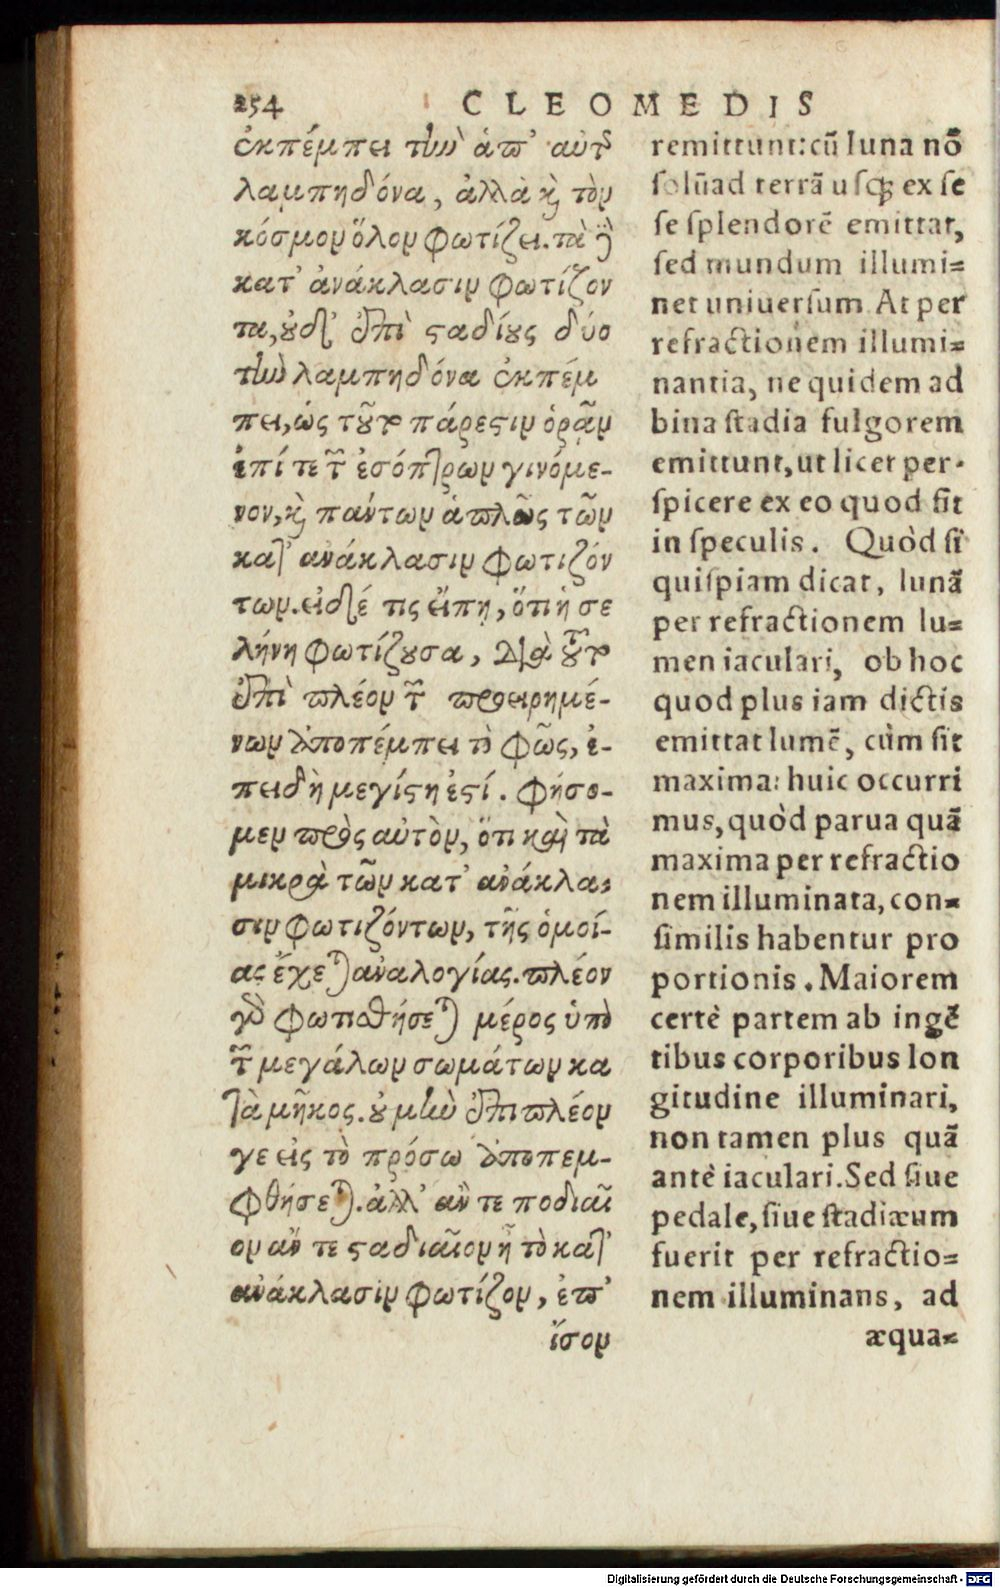 254 CLEOMEDIS
ἐκπέμπει τὴν ἀπ' αὐτῆς
λαμπηδόνα, ἀλλὰ καὶ τὸν
κόσμον ὅλον φωτίζει. τὰ δὲ
κατ' ἀνάκλασιν φωτίζον
τα, οὐδ' ἐπὶ σταδίους δύο
τὴν λαμπηδόνα ἐκπέμ
πει, ὡς τοῦτο πάρεστιν ὁρᾶν
ἐπί τε τῶν ἐσόπτρων γινόμε-
νον, καὶ πάντων ἁπλῶς τῶν
κατ' ἀνάκλασιν φωτιζόν
των. εἰ δέ τις εἴπῃ, ὅτι ἡ σε
λήνη φωτίζουσα, διὰ τοῦτο
ἐπὶ πλέον τῶν προειρημέ-
νων ἀποπέμπει τὸ φῶς, ἐ-
πειδὴ μεγίστη ἐστί. φήσο-
μεν πρὸς αὐτὸν, ὅτι καὶ τὰ
μικρὰ τῶν κατ' ἀνάκλα-
σιν φωτιζόντων, τῆς ὁμοί-
ας ἔχεται ἀναλογίας. πλέον
γὰρ φωτισθήσεται μέρος ὑπὸ
τῶν μεγάλων σωμάτων κα
τὰ μῆκος. οὐ μὴν ἐπὶ πλέον
γε εἰς τὸ πρόσω ἀποπεμ-
φθήσεται. ἀλλ' ἄν τε ποδιαῖ
ον ἄν τε σταδιαῖον ᾖ τὸ κατ'
ἀνάκλασιν φωτίζον, ἐπ'
ἴσον
remittunt: cū luna nō
solūad terrā usq; ex se
se splendorē emittat,
sed mundum illumi=
net uniuersum At per
refractionem illumi=
nantia, ne quidem ad
bina stadia fulgorem
emittunt, ut licet per-
spicere ex eo quod fit
in speculis. Quòd si
quispiam dicat, lunā
per refractionem lu=
men iaculari, ob hoc
quod plus iam dictis
emittat lumē, cùm sit
maxima: huic occurri
mus, quòd parua quā
maxima per refractio
nem illuminata, con=
similis habentur pro
portionis. Maiorem
certè partem ab ingē
tibus corporibus lon
gitudine illuminari,
non tamen plus quā
antè iaculari. Sed siue
pedale, siue stadiæum
fuerit per refractio=
nem illuminans, ad
æqua=
Digitalisierung gefördert durch die Deutsche Forschungsgemeinschaft - DFG